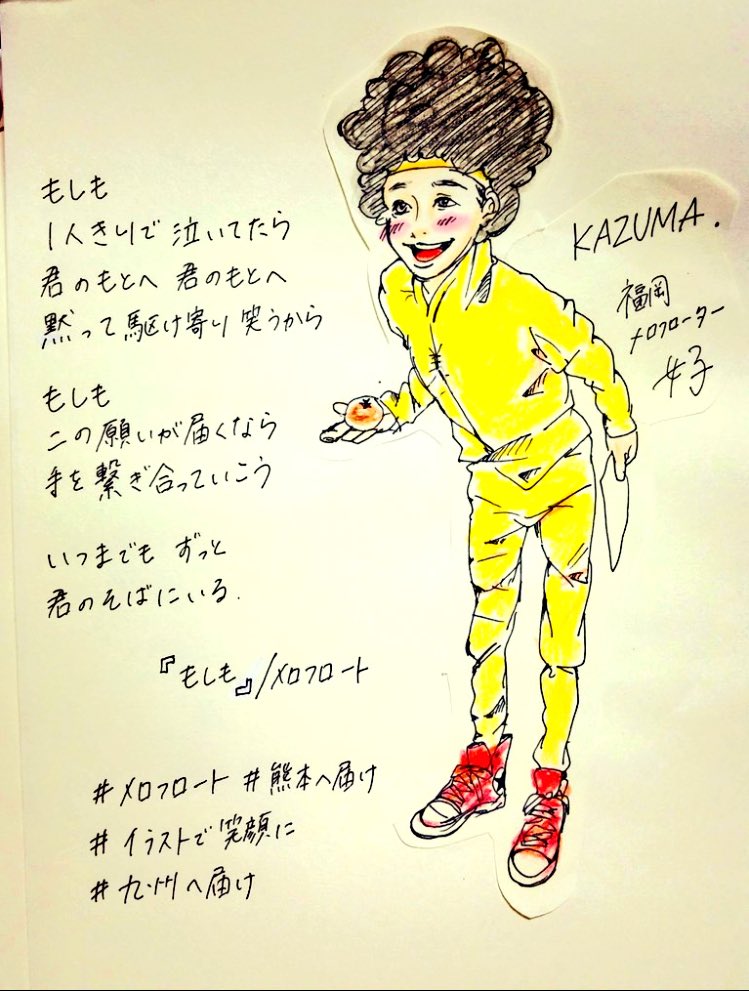 もしも
1人きりで 泣いてたら
君のもとへ 君のもとへ
黙って駆け寄り 笑うから
もしも
この願いが届くなら
手を繋ぎ合っていこう
いつまでも ずっと
君のそばにいる.
『もしも』/メロフロート
#メロフロート #熊本へ届け
#イラストで笑顔に
#九州へ届け
KAZUMA.
福岡
メロフローター
女子